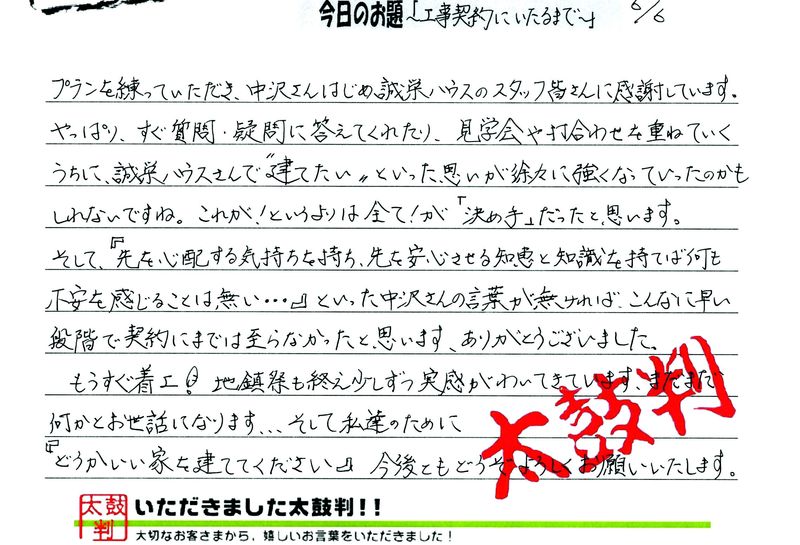 今日のお題~「工事契約にいたるまで~」 6/6
プランを練っていただき、中沢さんはじめ誠栄ハウスのスタッフ皆さんに感謝しています。
やっぱり、すぐ質問・疑問に答えてくれたり、見学会や打合わせを重ねていく
うちに、誠栄ハウスさんで〝建てたい〟といった思いが徐々に強くなっていったのかも
しれないですね。これが!というよりは全て!が「決め手」だったと思います。
そして、『先を心配する気持ちを持ち、先を安心させる知恵と知識を持てば何も
不安を感じることは無い・・・』といった中沢さんの言葉が無ければ、こんなに早い
段階で契約にまでは至らなかったと思います、ありがとうございました。
もうすぐ着工! 地鎮祭も終え少しずつ実感がわいてきています、まだまだ
何かとお世話になります... そして私達のために
『どうかいい家を建ててください』 今後ともどうぞよろしくお願いいたします。
太鼓判
太鼓判
いただきました太鼓判!!
大切なお客さまから、嬉しいお言葉をいただきました!